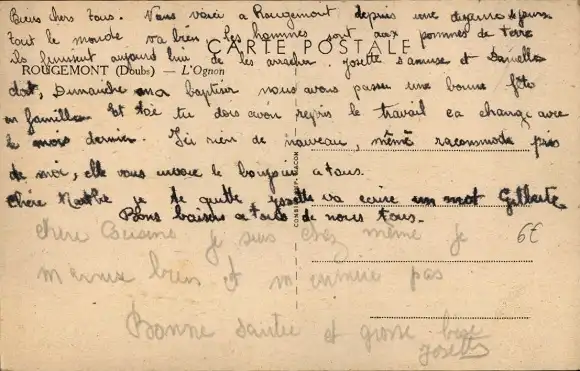 Biens chers tous. Vous voici a Rougemont depuis une dizaine de jours
tout le monde va bien les hommes sont aux pommes de terre
CARTE POSTALE
ils finissent aujourd'hui de les arracher. Josette s'amuse et Danielle
ROUGEMONT (Doubs) — L'Ognon
dort, Dimanche on a baptiser nous avons passer une bonne fête
en famille. Et toi tu dois avoir repris le travail ca change avec
le mois dernier. Ici rien de nouveau, même raccommode près
de moi, elle vous envoie le bonjour a tous.
Chère Marthe je te quitte Josette va ecrire un mot Gilberte
Bons baisers a tous de nous tous.
chère Cousine je suis chez mémé je 6€
m'amuse bien et m'ennuie pas
Bonne santée et grosse bise
Josette